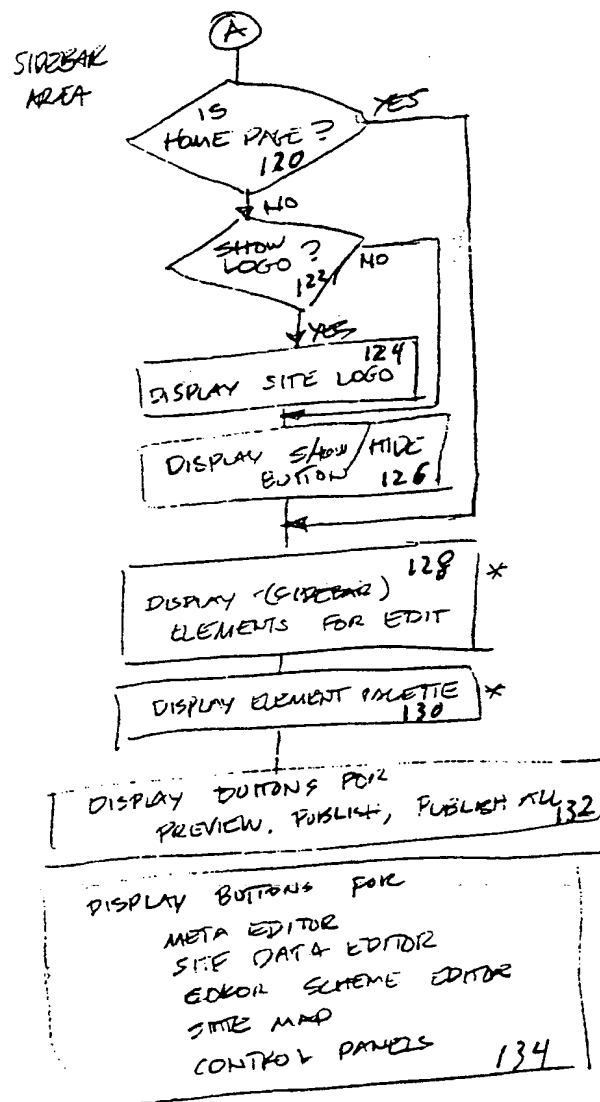 A
SIDEBAR
AREA
IS
HOME PAGE?
120
YES
NO
SHOW
LOGO?
122
NO
YES
124
DISPLAY SITE LOGO
DISPLAY SHOW/HIDE
BUTTON 126
128 *
DISPLAY (SIDEBAR)
ELEMENTS FOR EDIT
DISPLAY ELEMENT PALETTE *
130
DISPLAY BUTTONS FOR
PREVIEW, PUBLISH, PUBLISH ALL 132
DISPLAY BUTTONS FOR
META EDITOR
SITE DATA EDITOR
COLOR SCHEME EDITOR
SITE MAP
CONTROL PANELS 134